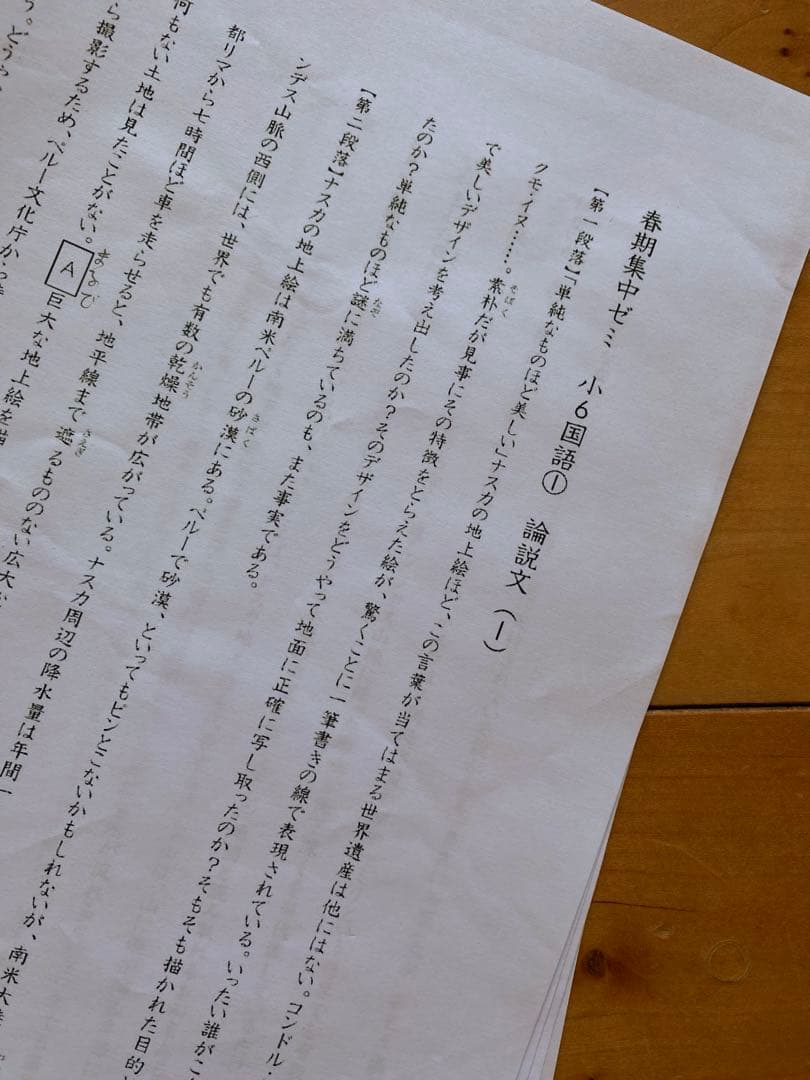 春期集中ゼミ　小6国語①　論説文（1）
【第一段落】「単純なものほど美しい」ナスカの地上絵ほど、この言葉が当てはまる世界遺産は他にはない。コンドル・
クモ・イヌ……。素朴だが見事にその特徴をとらえた絵が、驚くことに一筆書きの線で表現されている。いったい誰がこ
そぼく
で美しいデザインを考え出したのか？そのデザインをどうやって地面に正確に写し取ったのか？そもそも描かれた目的
たのか？単純なものほど謎に満ちているのも、また事実である。
なぞ
【第二段落】ナスカの地上絵は南米ペルーの砂漠にある。ペルーで砂漠、といってもピンとこないかもしれないが、南米大
さばく
ンデス山脈の西側には、世界でも有数の乾燥地帯が広がっている。ナスカ周辺の降水量は年間一
かんそう
都リマから七時間ほど車を走らせると、地平線まで遮るもののない広大
さえぎ
何もない土地は見たことがない。A巨大な地上絵を描
ら撮影するため、ペルー文化庁から
う。どうや